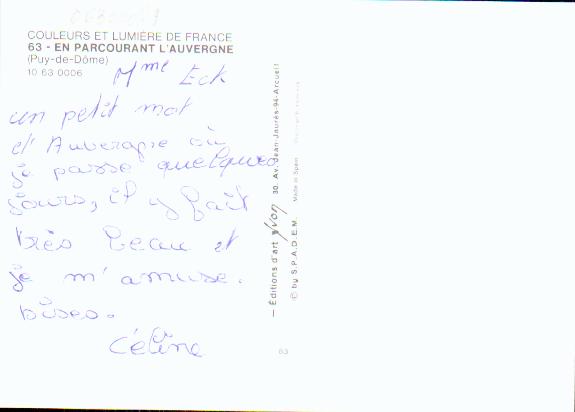 COULEURS ET LUMIÈRE DE FRANCE
63 - EN PARCOURANT L'AUVERGNE
(Puy-de-Dôme)
10 63 0006
Mme Eck
un petit mot
d'Auvergne où
je passe quelques
jours, il y fait
très beau et
je m'amuse.
bises.
Céline
— Éditions d'art yvon 30, Av. Jean-Jaurès-94-Arcueil
© by S.P.A.D.E.M. Made in Spain
63